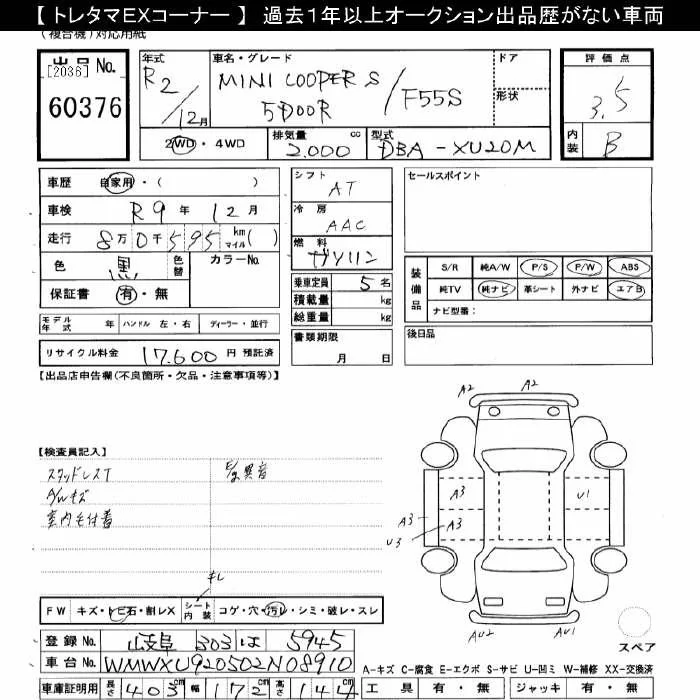 【 トレタマEXコーナー 】 過去1年以上オークション出品歴がない車両
(複合機)対応用紙
出品 No.
[2036]
60376
年式
R2/12月
車名・グレード
MINI COOPER S / F55S
5DOOR
ドア
形状
評価点
3.5
内装 B
2WD・4WD
排気量 cc
2.000
型式
DBA-XU20M
車歴 自家用・( )
車検 R9年12月
走行 8万0千595 km マイル( )
色 黒 色替
カラーNo.
保証書 有・無
シフト
AT
冷房
AAC
燃料
ガソリン
乗車定員 5名
積載量 kg
総重量 kg
セールスポイント
装備品
S/R 純A/W P/S P/W ABS
純TV 純ナビ 革シート 外ナビ エアB
ナビ型番:
モデル年式 年 ハンドル 左・右 ディーラー・並行
リサイクル料金 17.600円 預託済
書類期限
月 日
後日品
【出品店申告欄(不良箇所・欠品・注意事項等)】
【検査員記入】
スタッドレスT
A/Wキズ
室内毛付着
E/g異音
A2
A2
A3
A3
A3
U3
U1
AU2
AU1
スペア
キレ
FW キズ・トビ石・割レX
シート内装 コゲ・穴・汚レ・シミ・破レ・スレ
登録No. 岐阜 303 は 5945
車台No. WMWXU920502N08910
車庫証明用 長さ 403cm 幅 172cm 高さ 144cm
A-キズ C-腐食 E-エクボ S-サビ U-凹ミ W-補修 XX-交換済
工具 有・無 ジャッキ 有・無